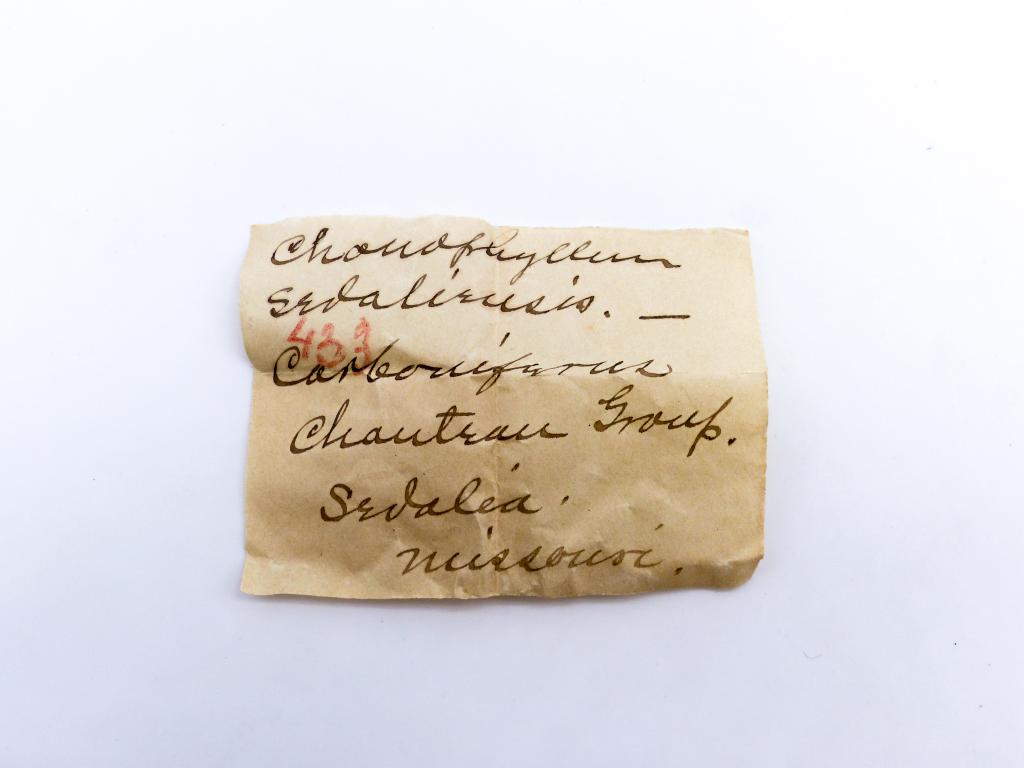 Chonophyllum
Sedaliensis. —
433
Carboniferus
Chouteau Group.
Sedalia.
Missouri.